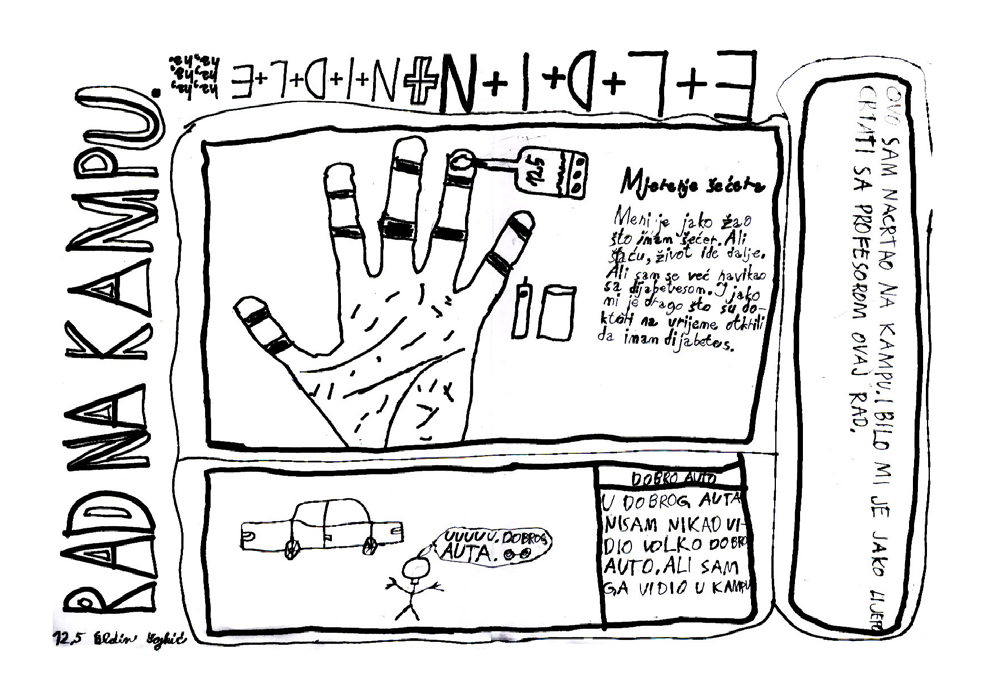 RAD NA KAMPU.
E+L+D+I+N+N+I+D+L+E
ha, ha,
ha, ha,
ha, ha.
12.5
Mjerenje šećera
Meni je jako žao
što imam šećer. Ali
šta ću, život ide dalje.
Ali sam se već navikao
sa dijabetesom. I jako
mi je drago što su do-
ktori na vrijeme otkrili
da imam dijabetes.
UUUUU. DOBROG
AUTA.
DOBRO AUTO
U DOBROG AUTA
NISAM NIKAD VI-
DIO VOLKO DOBRO
AUTO. ALI SAM
GA VIDIO U KAMPU
OVO SAM NACRTAO NA KAMPU. I BILO MI JE JAKO LIJEPO
CRTATI SA PROFESOROM OVAJ RAD.
12,5 Eldin